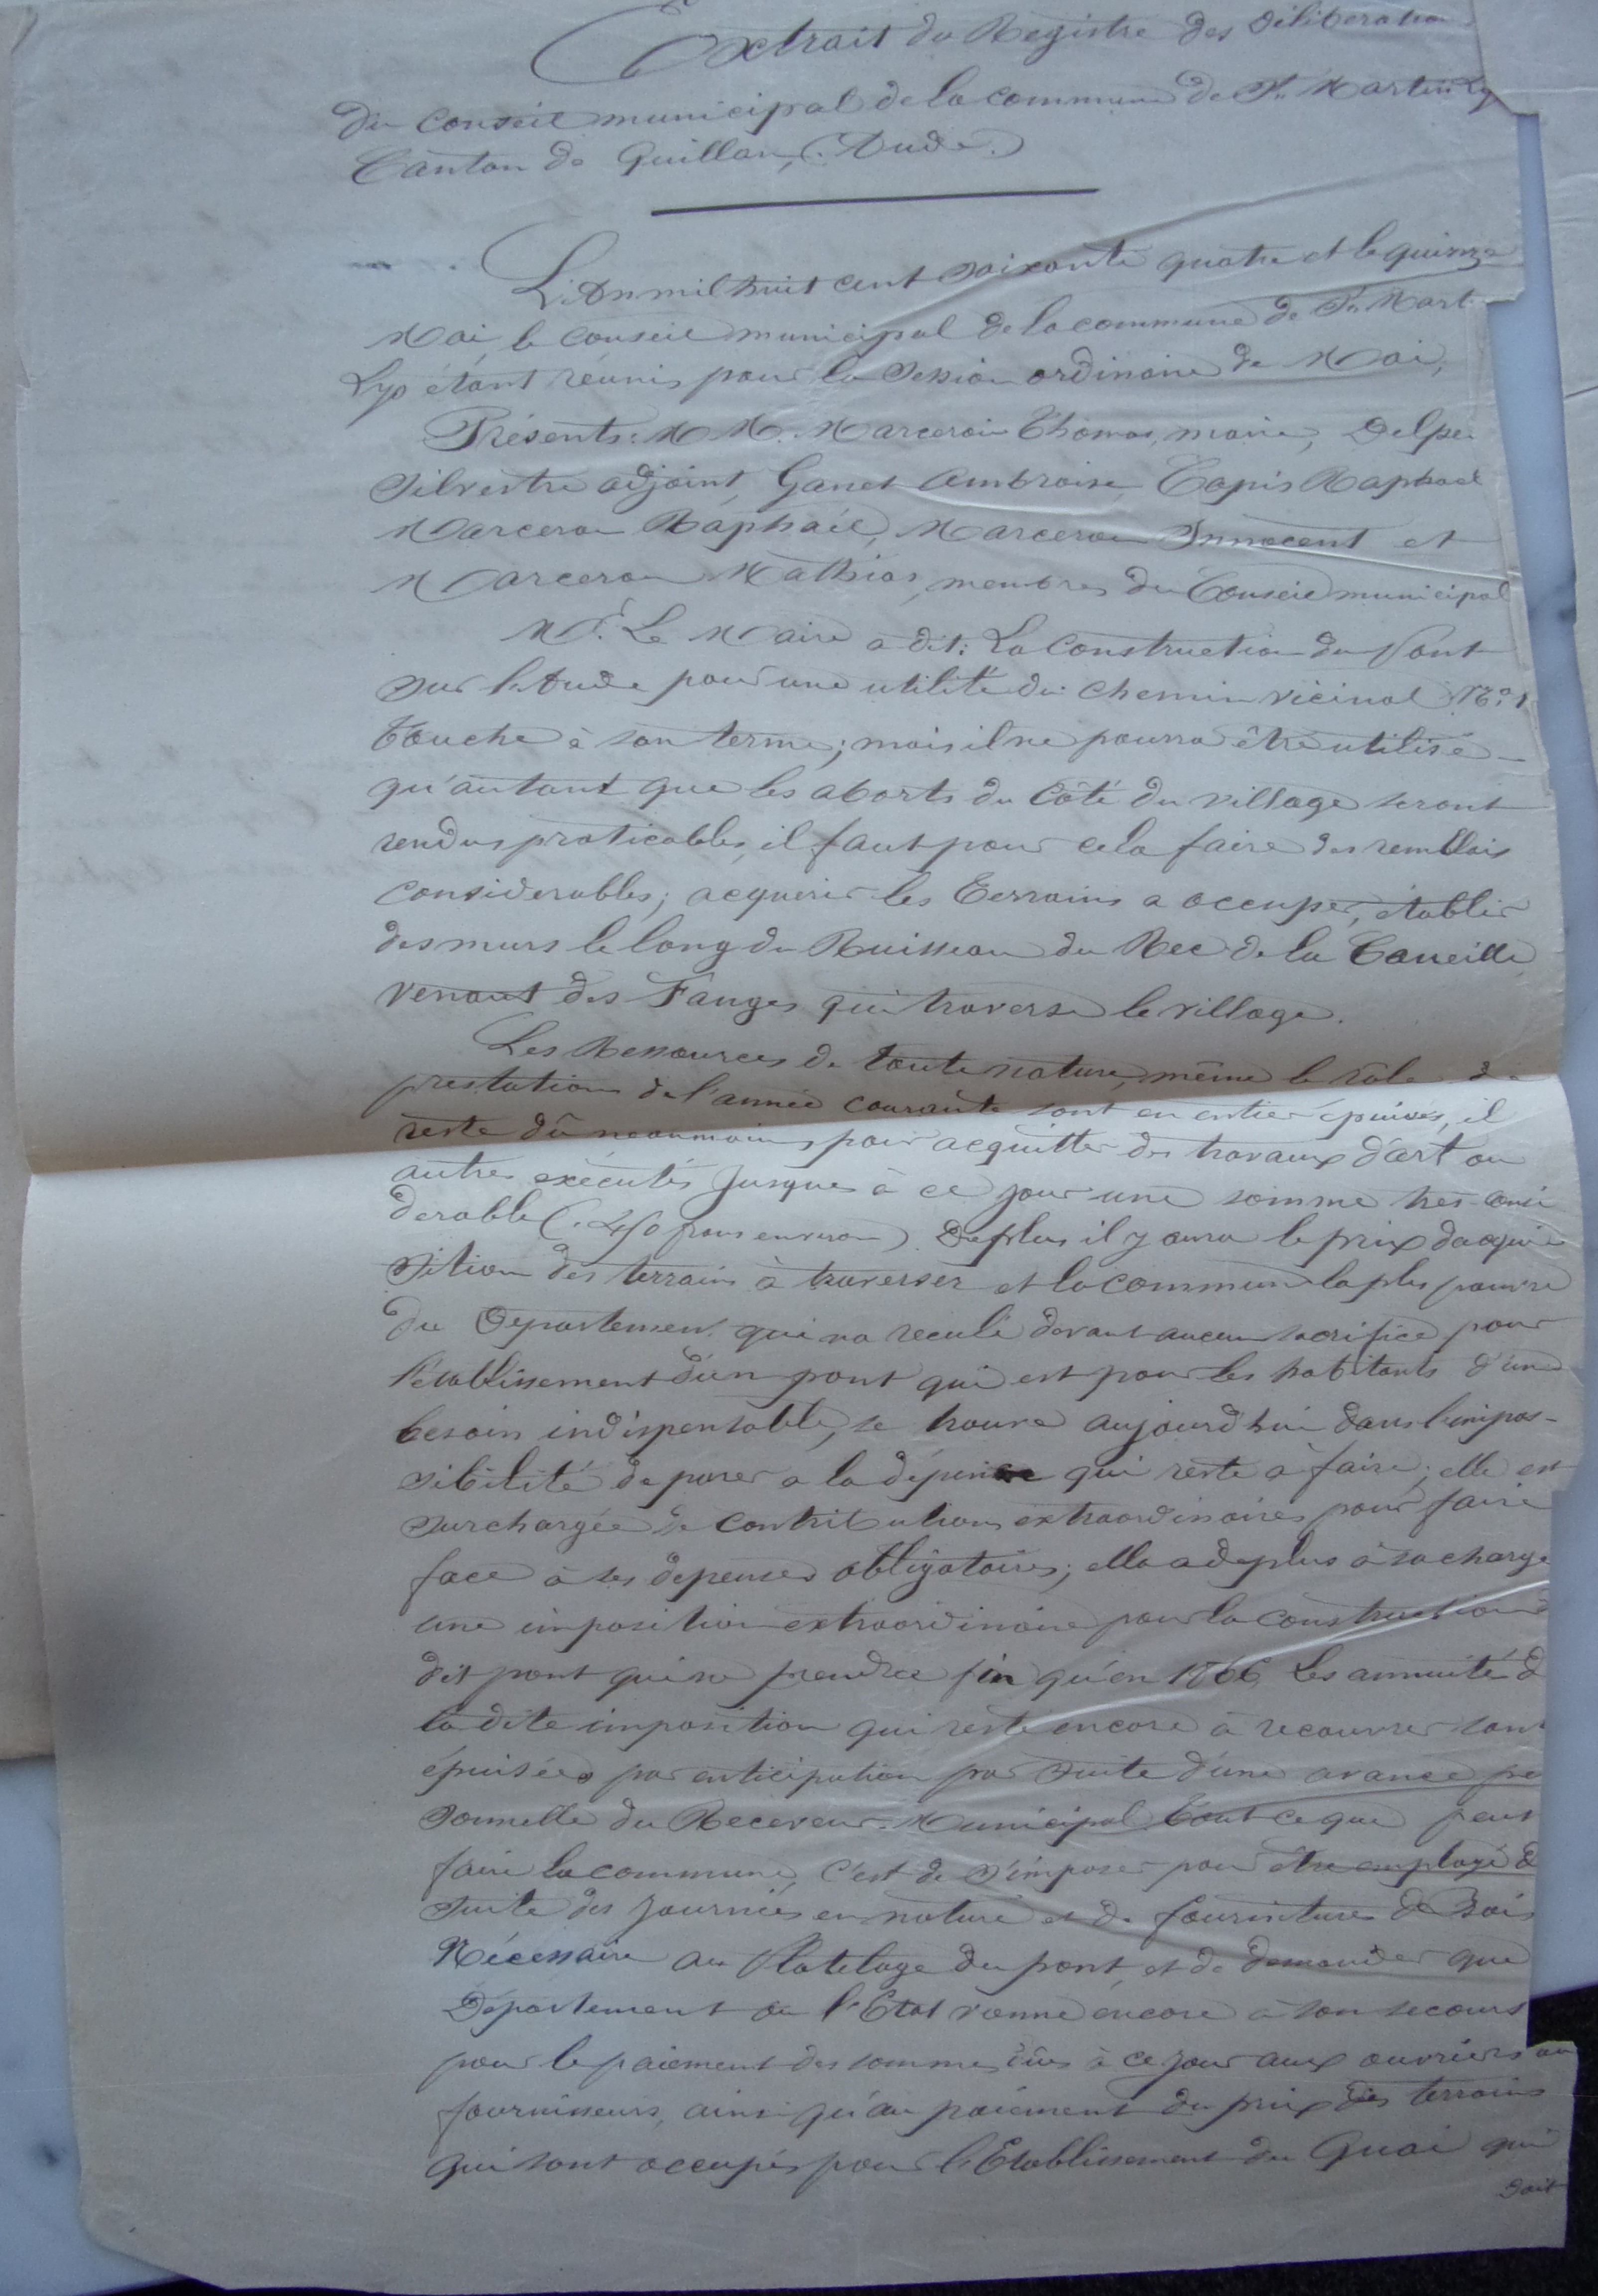 Extrait du Registre des déliberation
du conseil municipal de la commune de St. Martin Ly
Canton de Quillan, (Aude.)
L'An mil huit cent soixante quatre et le quinze
Mai, le conseil municipal de la commune de St. Mart
Lys étant réunis pour la Session ordinaire de Mai,
Présents: M M. Marceron Thomas, maire, Delpe
Silvestre adjoint, Ganet Ambroise Tapis Raphael
Marceron Raphaël, Marceron Innocent et
Marceron Mathias, membres du Conseil municipal
Mr. Le Maire a dit: La Construction du Pont
sur l'Aude pour une utilité du chemin vicinal No. 1
touche à son terme; mais il ne pourra être utilisé
qu'autant que les aborts du côté du village seront
rendus praticables, il faut pour cela faire des remblais
considerables; acquerir les terrains a occuper, établir
des murs le long du Ruisseau du Rec de la Caneille
venant des Fanges qui traverse le village.
Les Ressources de toute nature, même le rôle de
prestation de l'année courante sont en entier épuisés, il
reste dû neanmoins pour acquitter des travaux d'art ou
autres exécutés jusques à ce jour une somme tres consi
derable ( 450 frans environ). De plus il y aura le prix d'aqui
sition des terrains à traverser et la commune la plus pauvre
du Departement qui na reculé devant aucun sacrifice pour
l'etablissement d'un pont qui est pour les habitants d'un
besoin indispensable, se trouve aujourd'hui dans l'impos-
sibilité de parer a la dépense qui reste à faire; elle est
surchargée de contributions extraordinaires pour faire
face à ses depenses obligatoires; elle a de plus à sa charge
une imposition extraordinaire pour la construction
dit pont qui ne prendra fin qu'en 1866 Les annuité d
la dite imposition qui reste encore à recouvrer sont
épuisées par anticipation par suite d'une avance pe
sonnelle du Receveur Municipal. tout ce que peut
faire la commune, c'est de s'imposer pour être employé d
suite des journées en nature et de fourniture de Bois
Nécessaire au Platelage du pont, et de demander que
Département ou l'Etat vienne encore à son secours
pour le paiement des sommes dûes à ce jour aux ouvriers ou
fournisseurs, ainsi qu'au paiement du prix des terrains
qui sont occupés pour l'Etablissement du Quai qui
doit